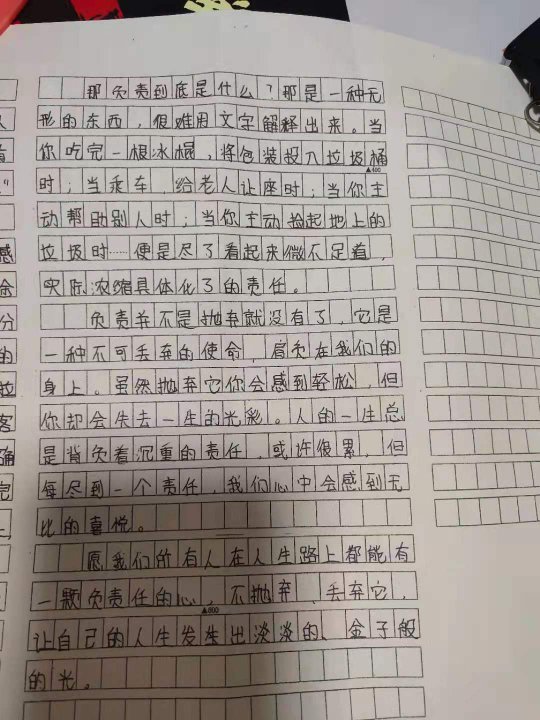 那负责到底是什么？那是一种无
形的东西，很难用文字解释出来。当
你吃完一根冰棍，将包装投入垃圾桶
▲400
时；当乘车，给老人让座时；当你主
动帮助别人时；当你主动捡起地上的
垃圾时……便是尽了看起来微不足道，
实际浓缩具体化了的责任。
负责并不是抛弃就没有了，它是
一种不可丢弃的使命，肩负在我们的
身上。虽然抛弃它你会感到轻松，但
你却会失去一生的光彩。人的一生总
是背负着沉重的责任，或许很累，但
每尽到一个责任，我们心中会感到无
比的喜悦。
愿我们所有人在人生路上都能有
一颗负责任的心，不抛弃、丢弃它，
▲600
让自己的人生发生出淡淡的、金子般
的光。